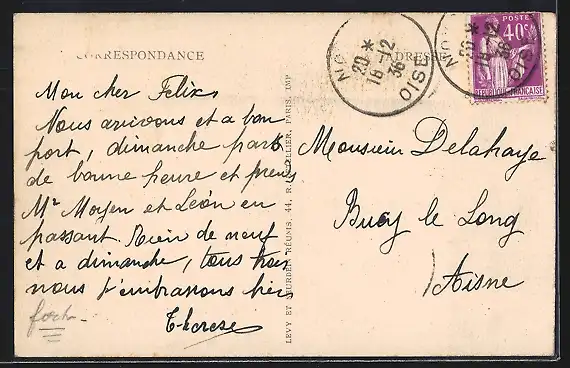 CORRESPONDANCE
ADRESSE
Mon cher Felix
Nous arrivons et a bon
port, dimanche pars
de bonne heure et prens
Mr Moyen et Leon en
passant. Rien de neuf
et a dimanche, tous trois
nous t'embrassons bien
fort
Therese
LEVY ET NEURDEIN RÉUNIS, 44, R. LETELLIER, PARIS, IMP
20 *
16 -12
36
OISE
20 *
16 -12
36
OISE
POSTE
40c
RÉPUBLIQUE FRANÇAISE
Monsieur Delahaye
Bucy le Long
Aisne